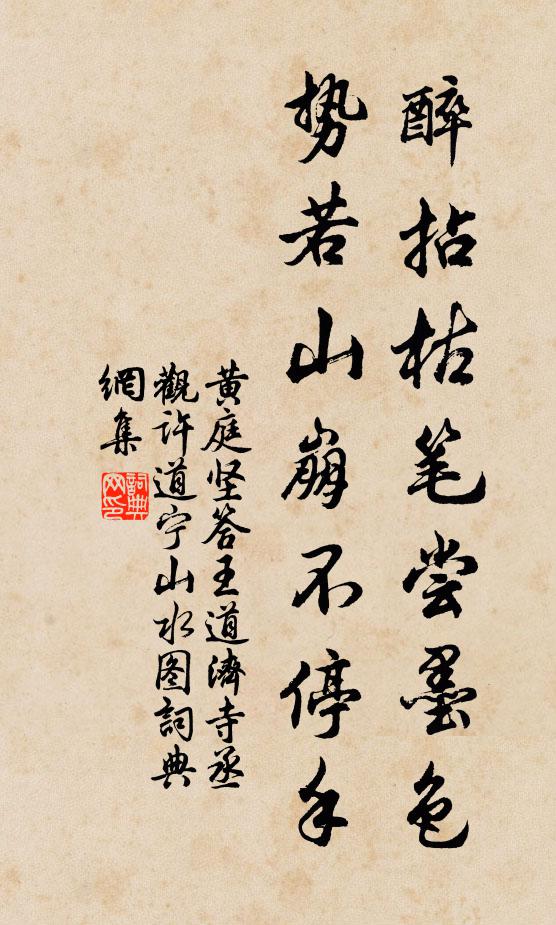 醉拈枯笔尝墨色
势若山崩不停手
黄庭坚答王道濟寺丞
觀许道宁山水图詞典
網集
詞典
网印